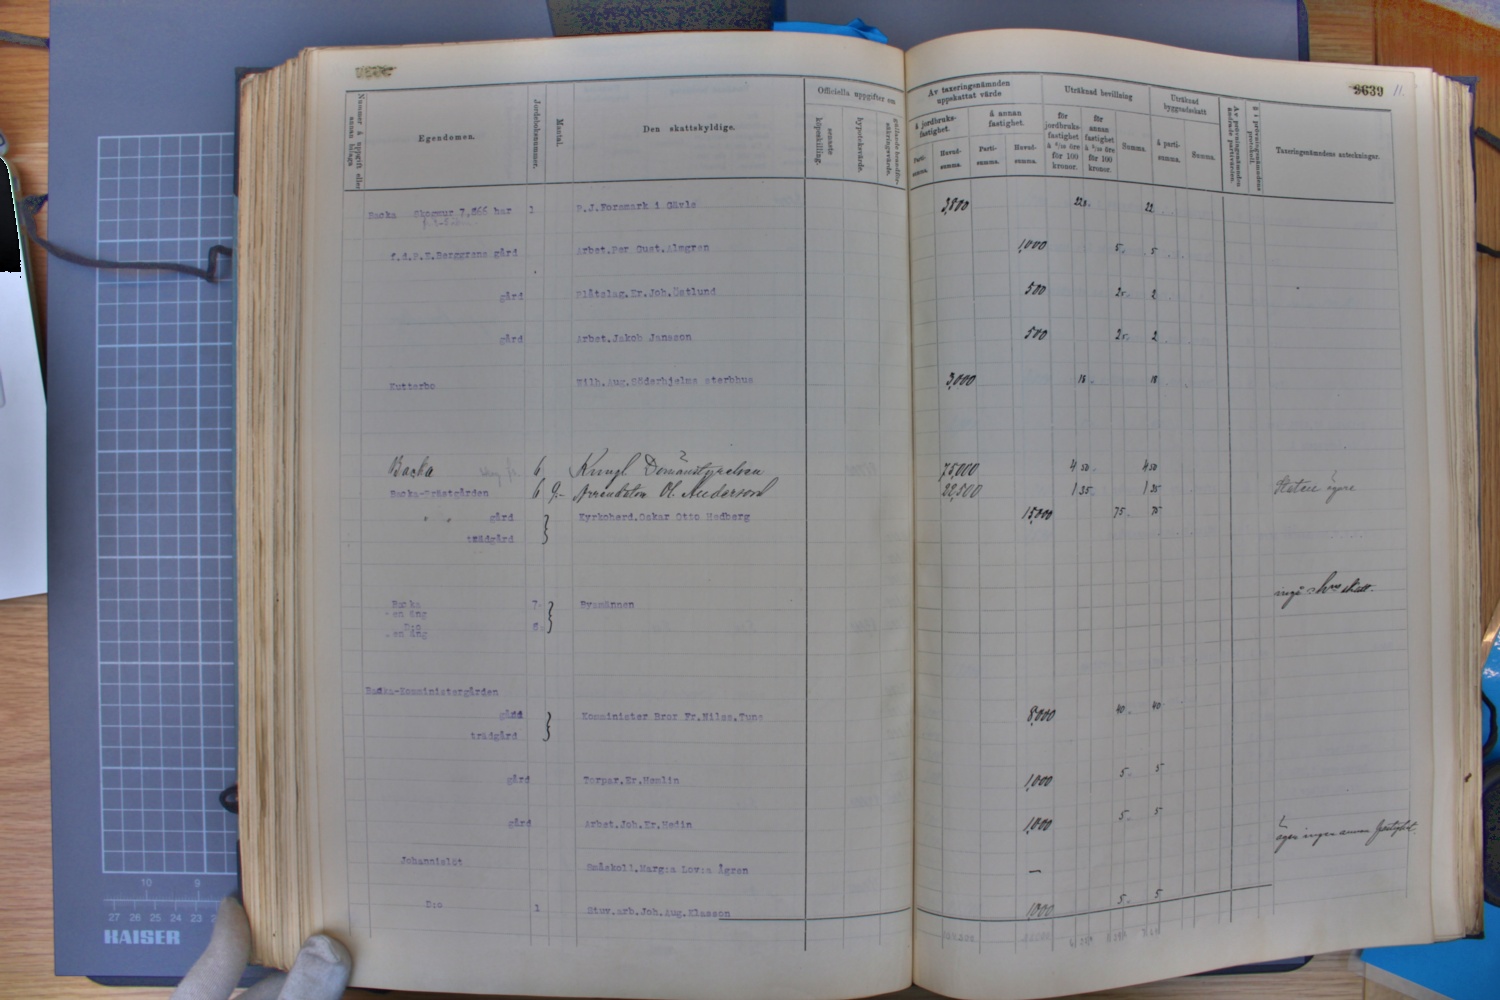 3639
11.
Nummer å uppgift eller annan bilaga
Egendomen.
Jordeboksnummer.
Mantal.
Den skattskyldige.
Officiella uppgifter om
senaste köpeskilling.
hypoteksvärde.
gällande brandförsäkringsvärde.
Av taxeringsnämnden uppskattat värde
å jordbruksfastighet.
å annan fastighet.
Partisumma.
Huvudsumma.
Partisumma.
Huvudsumma.
Uträknad bevillning
för jordbruksfastighet å 6/10 öre för 100 kronor.
för annan fastighet å 5/10 öre för 100 kronor.
Summa.
Uträknad byggnadsskatt
å partisumma.
Summa.
Av prövningsnämnden ändrade partivärden.
§ i prövningsnämndens protokoll.
Taxeringsnämndens anteckningar.
Backa Skogmur 7,066 har 1 P.J.Forsmark i Gävle 3,800 22
f.d.P.E.Berggrens gård Arbet.Per Gust.Almgren 1,000 5. 5
gård Plåtslag.Er.Joh.Östlund 500 2 2
gård Arbet.Jakob Jansson 500 2 2
Kutterbo Wilh.Aug.Söderhjelms sterbhus 3,000 18. 18
Backa 6 Kungl Domänstyrelsen 75,000 4 50. 4 50
Backa-Prästgården 6 Arrendator Ol. Anderson 22,500 1 35. 1 35 Staten ägare
" " gård } Kyrkoherd.Oskar Otto Hedberg 15,000 75. 75
trädgård
Backa 7. } Byamännen
en äng
D:o 8.
en äng
Backa-Komministergården
gård } Komminister Bror Fr.Nilss.Tuns 8,000 40. 40
trädgård
gård Torpar.Er.Hemlin 1,000 5. 5
gård Arbet.Joh.Er.Hedin 1,000 5. 5
äger ingen annan fastighet.
Johannislöt Småskoll.Marg:a Lov:a Ågren —
D:o 1 Stuv.arb.Joh.Aug.Klasson 1000 5. 5
10
9
27 26 25 24 23
KAISER